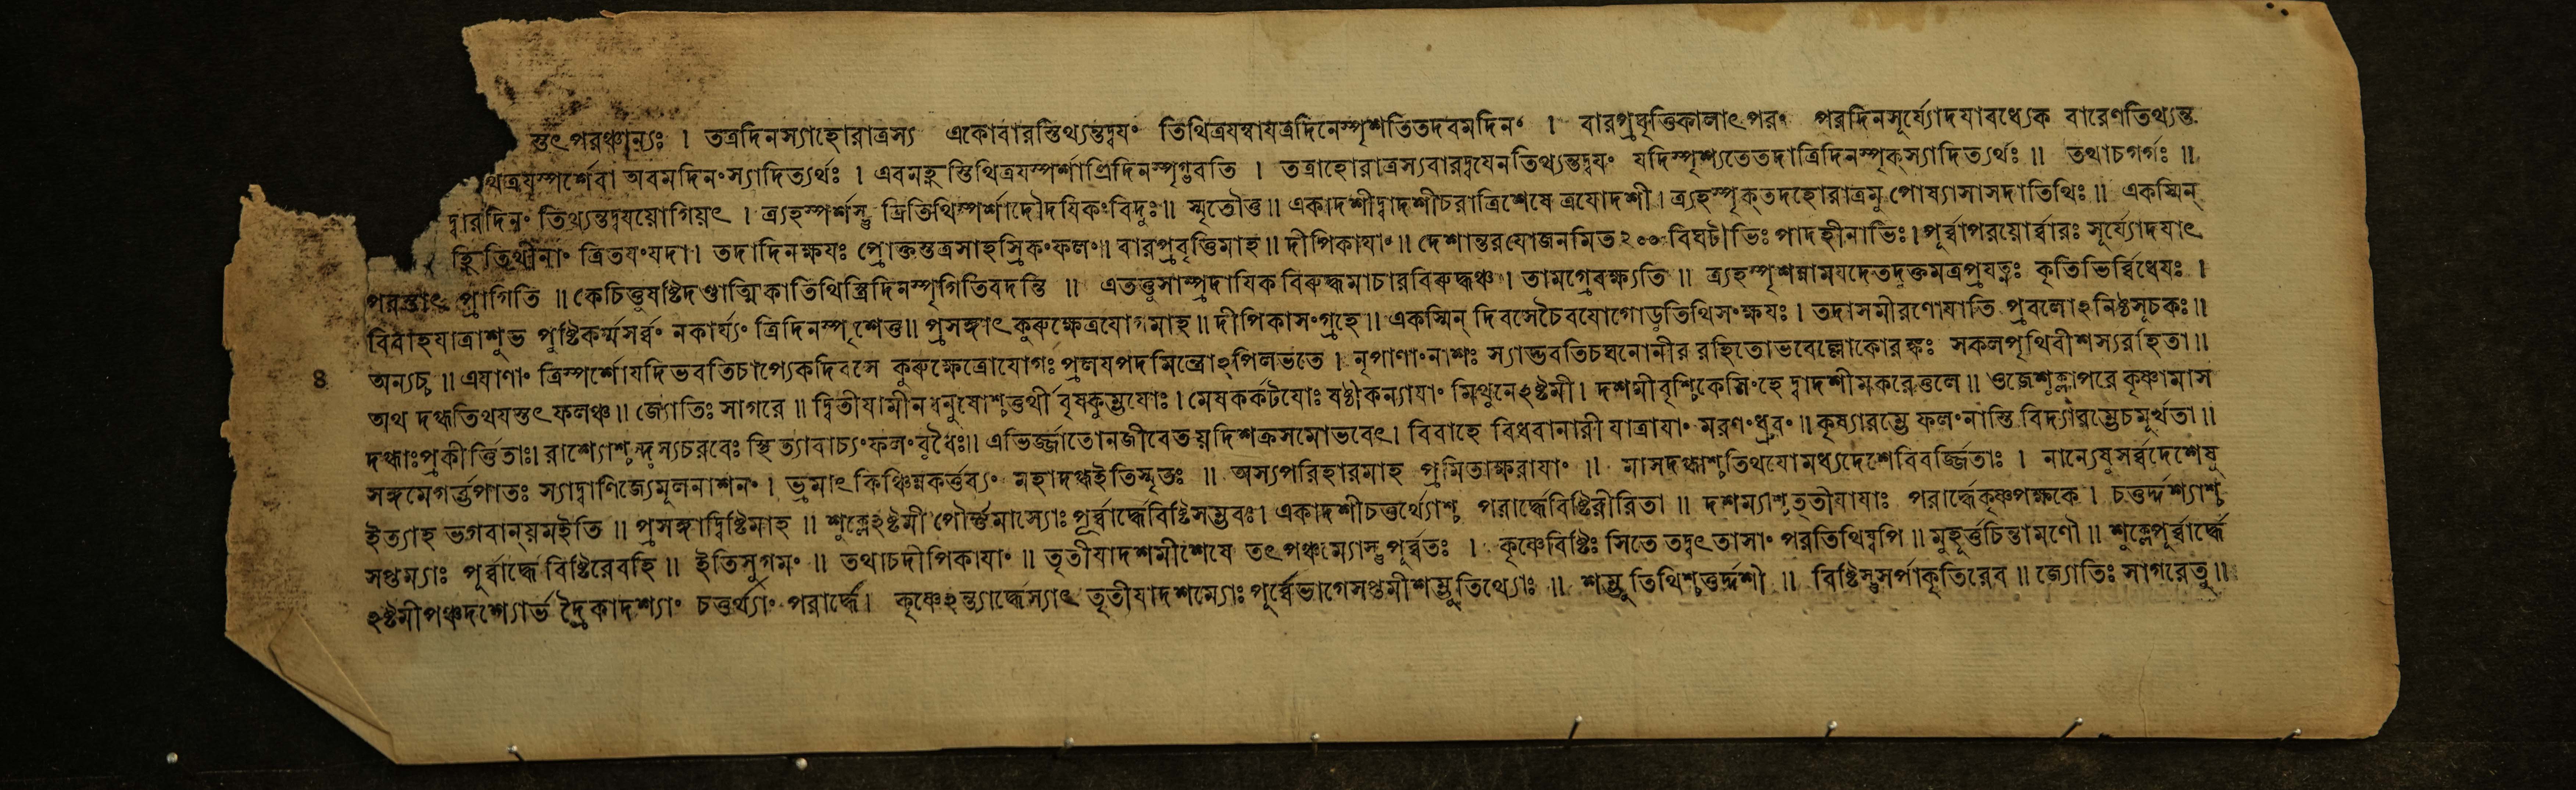 ন্তৎপরঞ্চান্যঃ । তত্রদিনস্যাহোরাত্রস্য একোবারস্তিথ্যন্তদ্বযং তিথিত্রযম্বাযত্রদিনেস্পৃশতিতদবমদিনং । বারপ্রবৃত্তিকালাৎপরং পরদিনসূর্য্যোদযাবধ্যেক বারেণতিথ্যন্ত
থিত্রযস্পর্শেবা অবমদিনংস্যাদিত্যর্থঃ । এবমহ্নস্তিথিত্রযস্পর্শাৎত্রিদিনস্পৃগ্ভবতি । তত্রাহোরাত্রস্যবারদ্বযেনতিথ্যন্তদ্বযং যদিস্পৃশ্যতেতদাত্রিদিনস্পৃক্স্যাদিত্যর্থঃ ॥ তথাচগর্গঃ ॥
দ্বারদিনং তিথ্যন্তদ্বযয়োগিয়ৎ । ত্র্যহস্পর্শস্তু ত্রিতিথিস্পর্শাদৌদযিকংবিদুঃ ॥ স্মৃতৌত্ত ॥ একাদশীদ্বাদশীচরাত্রিশেষে ত্রযোদশী । ত্র্যহস্পৃক্তদহোরাত্রমুপোষ্যাসাসদাতিথিঃ ॥ একস্মিন্
হ্নিতিথীনাং ত্রিতযংযদা । তদাদিনক্ষযঃ প্রোক্তস্তত্রসাহস্রিকংফলং ॥ বারপ্রবৃত্তিমাহ ॥ দীপিকাযাং ॥ দেশান্তরযোজনমিত২০০বিঘটাভিঃ পাদহীনাভিঃ । পূর্ব্বাপরয়োর্ব্বারঃ সূর্য্যোদযাৎ
পরস্তাৎ প্রাগিতি ॥ কেচিত্তুষষ্টিদণ্ডাত্মিকাতিথিস্ত্রিদিনস্পৃগিতিবদন্তি ॥ এতত্তুসাম্প্রদাযিক বিরুদ্ধমাচারবিরুদ্ধঞ্চ । তামগ্রেবক্ষ্যতি ॥ ত্র্যহস্পৃশন্নামযদেতদুক্তমত্রপ্রযত্নঃ কৃতিভির্ব্বিধেযঃ ।
বিবাহযাত্রাশুভ পুষ্টিকর্ম্মসর্ব্বং নকার্য্যং ত্রিদিনস্পৃশেত্তু ॥ প্রসঙ্গাৎকুরুক্ষেত্রযোগমাহ ॥ দীপিকাসংগ্রহে ॥ একস্মিন্ দিবসেচৈবযোগোড়ুতিথিসংক্ষযঃ । তদাসমীরণোযাতি প্রবলোঽনিষ্টসূচকঃ ॥
৪ অন্যচ্চ ॥ এষাণাং ত্রিস্পর্শোযদিভবতিচাপ্যেকদিবসে কুরুক্ষেত্রোযোগঃ প্রলযপদমিন্দ্রোঽপিলভতে । নৃপাণাংনাশঃ স্যাদ্ভবতিচঘনোনীর রহিতোভবেল্লোকোরঙ্কঃ সকলপৃথিবীশস্যরহিতা ॥
অথ দগ্ধতিথযস্তৎফলঞ্চ ॥ জ্যোতিঃ সাগরে ॥ দ্বিতীযামীনধনুষোশ্চতুর্থী বৃষকুম্ভযোঃ । মেষকর্কটযোঃ ষষ্ঠীকন্যাযাং মিথুনেঽষ্টমী । দশমীবৃশ্চিকেসিংহে দ্বাদশীমকরেতুলে ॥ ওজেশুক্লাপরে কৃষ্ণামাস
দগ্ধাঃপ্রকীর্ত্তিতাঃ । রাশ্যোশ্চন্দ্রস্যচরবেঃ স্থিত্যাবাচ্যংফলংবুধৈঃ ॥ এভির্জ্জাতোনজীবেতয়দিশক্রসমোভবেৎ । বিবাহে বিধবানারী যাত্রাযাং মরণংধ্রুবং ॥ কৃষ্যারম্ভে ফলংনাস্তি বিদ্যারম্ভেচমূর্খতা ॥
সঙ্গমেগর্ব্ভপাতঃ স্যাদ্বাণিজ্যেমূলনাশনং । ভ্রমাৎকিঞ্চিন্নকর্ত্তব্যং মহাদগ্ধইতিস্মৃতঃ ॥ অস্যপরিহারমাহ প্রমিতাক্ষরাযাং ॥ মাসদগ্ধাশ্চতিথযোমধ্যদেশেবিবর্জ্জিতাঃ । নান্যেষুসর্ব্বদেশেষু
ইত্যাহ ভগবান্যমইতি ॥ প্রসঙ্গাদ্বিষ্টিমাহ ॥ শুক্লেঽষ্টমী পৌর্ণমাস্যোঃপূর্ব্বার্দ্ধেবিষ্টিসম্ভবঃ । একাদশীচতুর্থ্যোশ্চ পরার্দ্ধেবিষ্টিরীরিতা ॥ দশম্যাশ্চতৃতীযাযাঃ পরার্দ্ধেকৃষ্ণপক্ষকে । চতুর্দ্দশ্যাশ্চ
সপ্তম্যাঃ পূর্ব্বার্দ্ধেবিষ্টিরেবহি ॥ ইতিসুগমং ॥ তথাচদীপিকাযাং ॥ তৃতীযাদশমীশেষে তৎপঞ্চম্যোস্তুপূর্ব্বতঃ । কৃষ্ণেবিষ্টিঃ সিতে তদ্বৎতাসাং পরতিথিষ্বপি ॥ মুহূর্ত্তচিন্তামণৌ ॥ শুক্লেপূর্ব্বার্দ্ধে
ঽষ্টমীপঞ্চদশ্যোর্ভ দ্রৈকাদশ্যাং চতুর্থ্যাং পরার্দ্ধে । কৃষ্ণেঽন্ত্যার্দ্ধেস্যাৎ তৃতীযাদশম্যোঃপূর্ব্বেভাগেসপ্তমীশম্ভুতিথ্যোঃ ॥ শম্ভুতিথিশ্চতুর্দ্দশী ॥ বিষ্টিস্তুসর্পাকৃতিরেব ॥ জ্যোতিঃ সাগরেতু ॥